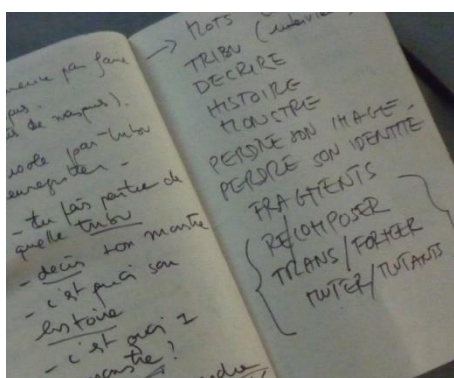 par faire
pus.
de naspus).
parle par-tribu
enregistrer -
- tu fais partie de
quelle tribu
- décris ton monstre
- c'est quoi son
histoire
- c'est quoi 1
monstre ?
→ MOTS (
TRIBU (
DECRIRE
HISTOIRE
MONSTRE
PERDRE SON IMAGE -
PERDRE SON IDENTITE
FRAGMENTS
RECOMPOSER
TRANS/FORMER
MUTER/MUTANTS